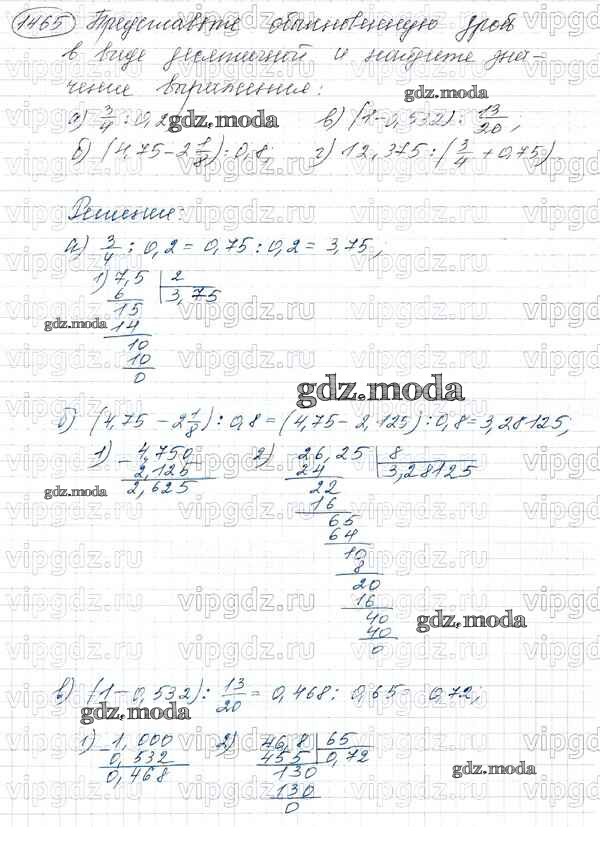 1465 Представьте обыкновенную дробь
в виде десятичной и найдите зна-
чение выражения:
gdz.moda
а) 3/4 : 0,2; в) (1-0,532) : 13/20;
gdz.moda
б) (4,75-2 1/8) : 0,8; г) 12,375 : (3/4 + 0,75).
Решение:
а) 3/4 : 0,2 = 0,75 : 0,2 = 3,75;
1) 7,5 | 2
6 3,75
15
gdz.moda
14
10
10
0
gdz.moda
б) (4,75 - 2 1/8) : 0,8 = (4,75 - 2,125) : 0,8 = 3,28125;
1) - 4,750 2) 26,25 | 8
2,125 24 3,28125
gdz.moda
2,625 22
16
65
64
10
8
20
16
40
gdz.moda
40
0
в) (1-0,532) : 13/20 = 0,468 : 0,65 = 0,72;
gdz.moda
1) - 1,000 2) 46,8 | 65
0,532 455 0,72
0,468 130
gdz.moda
130
0
vipgdz.ru